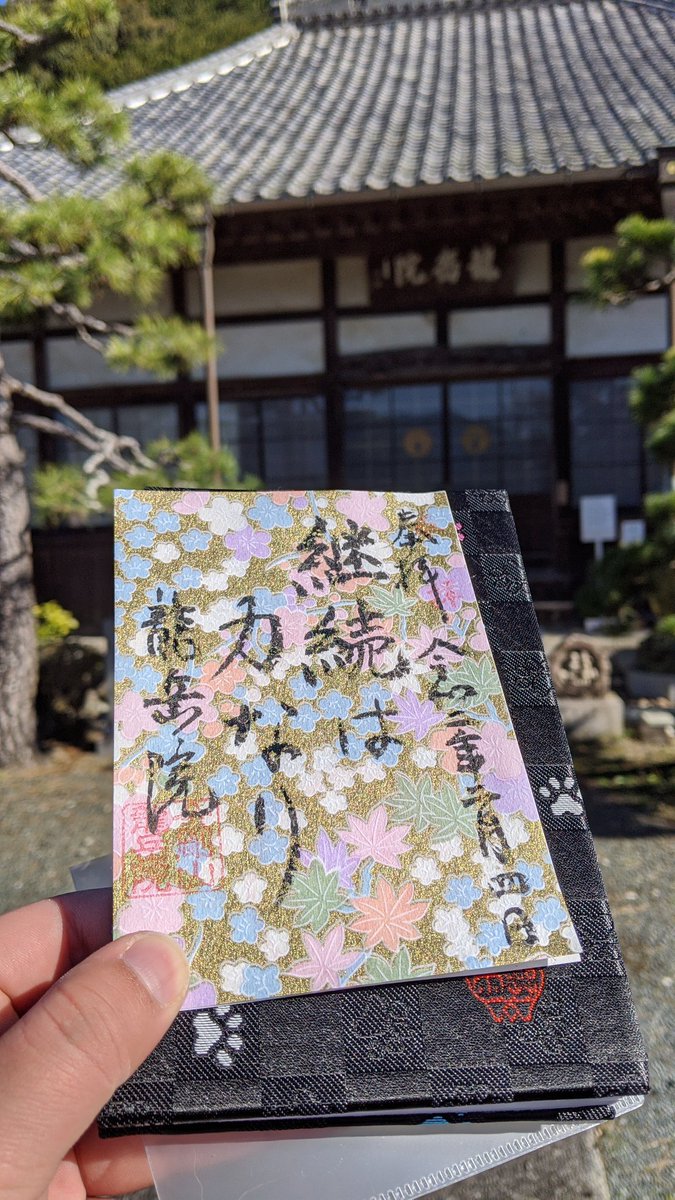 龍岳院
奉拝 令二年二月四日
継続は
力なり
龍岳院